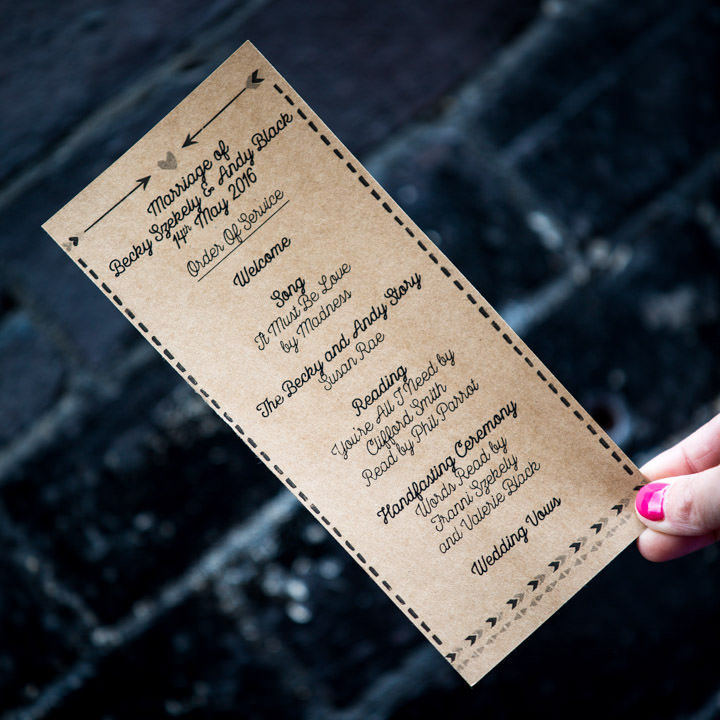 Marriage of
Becky Szekely & Andy Black
14th May 2016
Order Of Service
Welcome
Song
It Must Be Love
by Madness
The Becky and Andy Story
Susan Rae
Reading
You're All I Need by
Clifford Smith
Read by Phil Parrot
Handfasting Ceremony
Words Read by
Franni Szekely
and Valerie Black
Wedding Vows